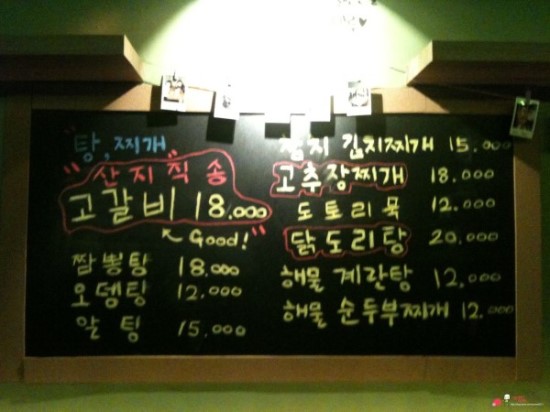 "탕, 찌개
산지직송
고갈비 18.000"
↖ Good!
짬뽕탕 18.000
오뎅탕 12.000
알탕 15.000
참치 김치찌개 15.000
고추장찌개 18.000
도토리묵 12.000
닭도리탕 20.000
해물 계란탕 12.000
해물 순두부찌개 12.000